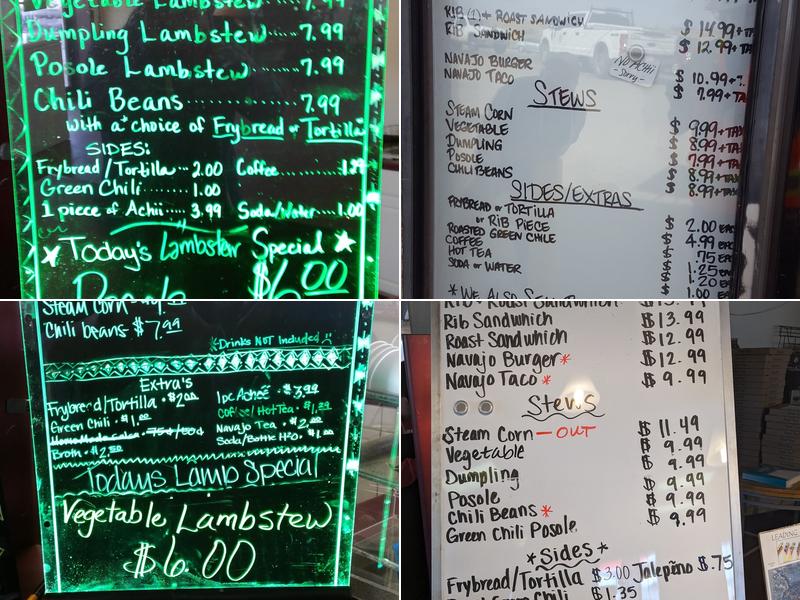 Vegetable Lambstew 7.99
Dumpling Lambstew 7.99
Posole Lambstew 7.99
Chili Beans 7.99
with a choice of Frybread or Tortilla
SIDES:
Frybread/Tortilla 2.00 Coffee
Green Chili 1.00
1 piece of Achii 3.99 Soda/Water 1.00
Today's Lambstew Special
$6.00
RIB (1) + ROAST SANDWICH $14.99+TA
RIB SANDWICH $12.99+TA
NO ACHII
-Sorry-
NAVAJO BURGER $10.99+T
NAVAJO TACO $7.99+TA
STEWS
STEAM CORN $9.99+TAX
VEGETABLE $8.99+TAX
DUMPLING $7.99+TAX
POSOLE $8.99+TAX
CHILI BEANS $8.99+TAX
SIDES/EXTRAS
FRYBREAD or TORTILLA $2.00 EAC
or RIB PIECE $4.99 EAC
ROASTED GREEN CHILE $.75 EAC
COFFEE $1.25 EA
HOT TEA $1.20 EA
SODA or WATER $1.00 EA
* WE ALSO
Steam Corn
Chili beans $7.99
*Drinks NOT Included
Extra's
Frybread/Tortilla $2.00 1pc Acheé $3.99
Green Chili $1.00 Coffee/Hot Tea $1.29
Navajo Tea $2.00
Broth $2.50 Soda/Bottle H2O $1.00
Todays Lamb Special
Vegetable Lambstew
$6.00
Rib Sandwhich $13.99
Roast Sandwhich $12.99
Navajo Burger* $12.99
Navajo Taco* $9.99
Stews
Steam Corn — OUT $11.49
Vegetable $9.99
Dumpling $9.99
Posole $9.99
Chili Beans* $9.99
Green Chili Posole $9.99
*Sides*
Frybread/Tortilla $3.00 Jalepeño $.75
$1.35
LEADING